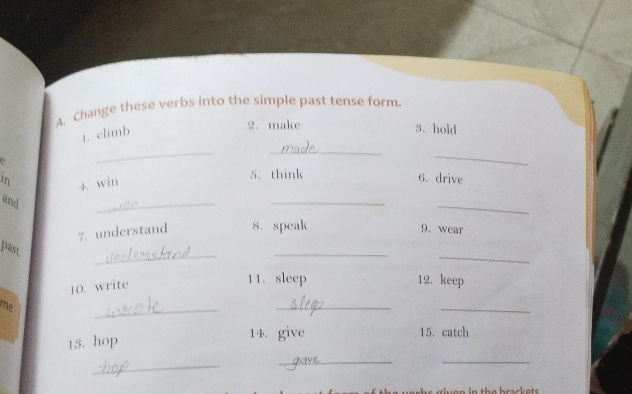 A. Change these verbs into the simple past tense form.
1. climb 2. make 3. hold
made
4. win 5. think 6. drive
won
7. understand 8. speak 9. wear
understand
10. write 11. sleep 12. keep
wrote slep
13. hop 14. give 15. catch
hop gave
e
in
and
past
me
given in the brackets